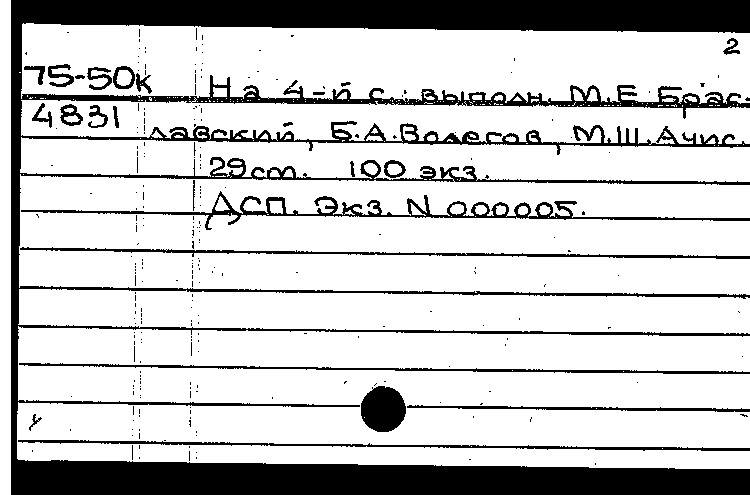 2
75-50к На 4-й с.: выполн. М.Е. Брас-
4831 лавский, Б.А. Волегов, М.Ш. Ачис.
29 cm. 100 экз.
ДСП. Экз. N 000005.